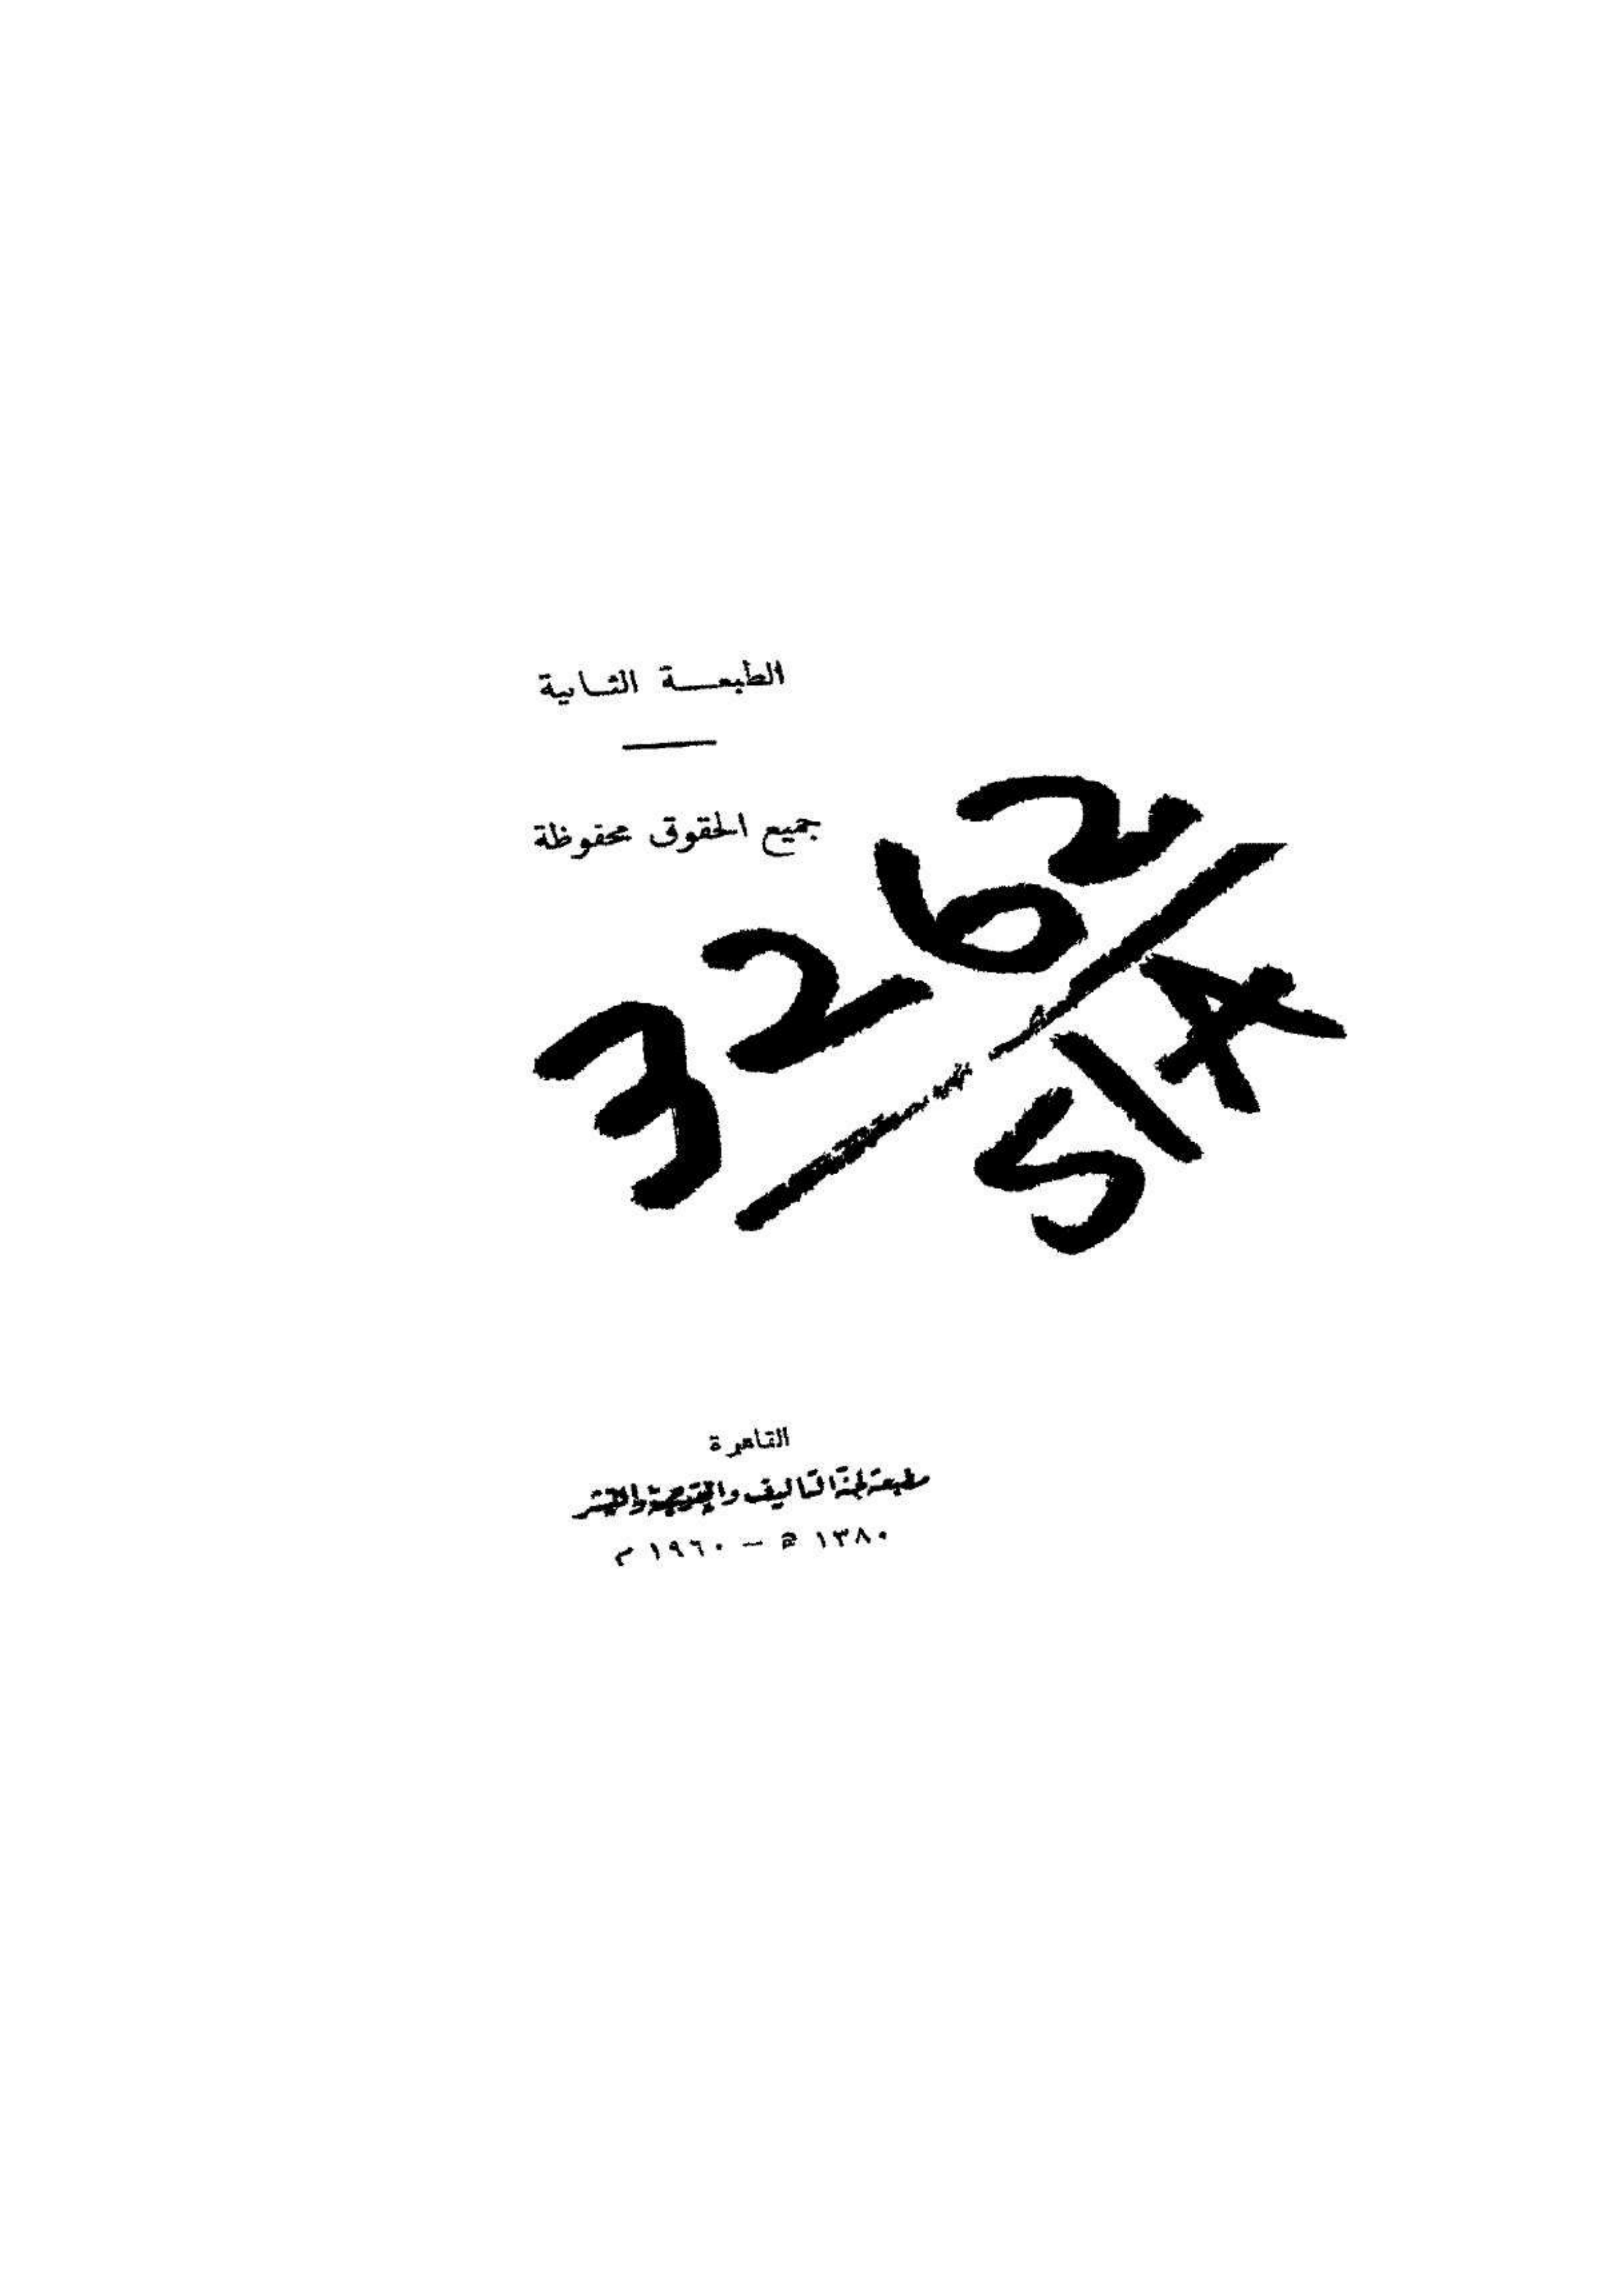 الطبعة الثانية
جميع الحقوق محفوظة
3262
517
القاهرة
مطبعة لجنة التأليف والترجمة والنشر
١٣٨٠ هـ — ١٩٦٠ م